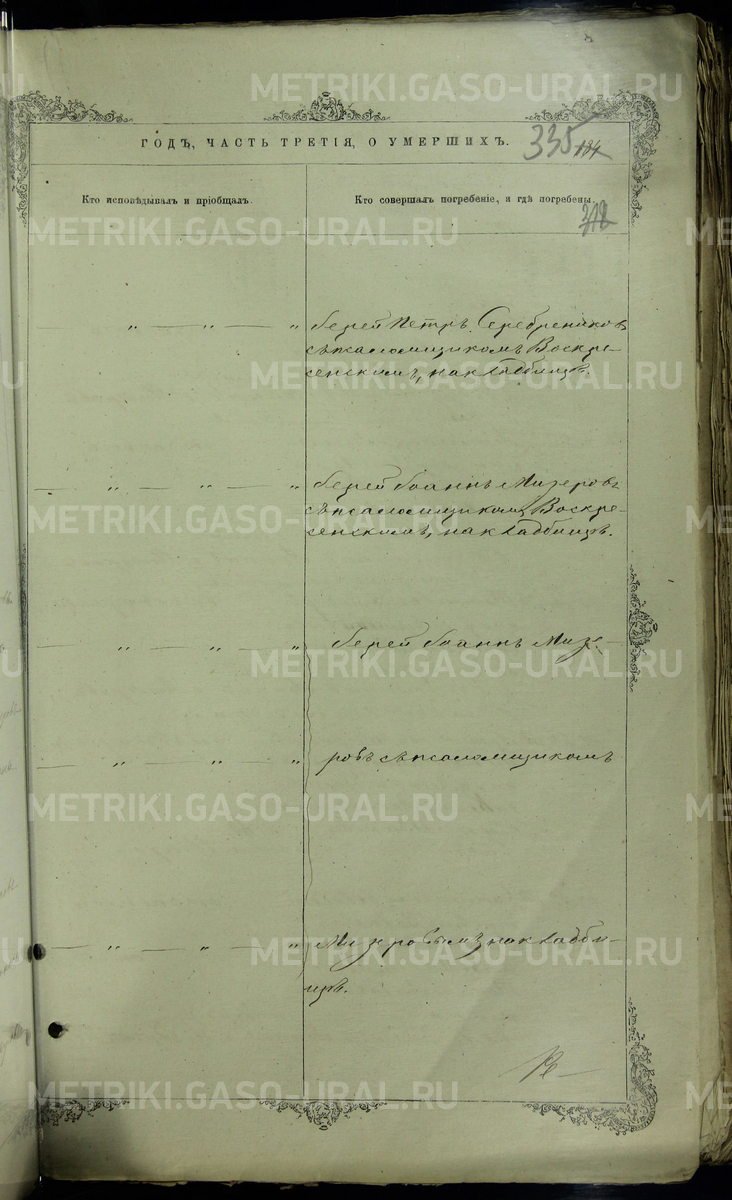 METRIKI.GASO-URAL.RU
ГОДЪ, ЧАСТЬ ТРЕТІЯ, О УМЕРШИХЪ.
335
184
Кто исповѣдывалъ и пріобщалъ.
Кто совершалъ погребеніе, и гдѣ погребены.
312
— „ — „ — „
Іерей Петръ Серебрениковъ
съ псаломщикомъ Воскре-
сенскимъ, на кладбищѣ.
— „ — „ — „
Іерей Іоаннъ Мизеровъ
съ псаломщикомъ Воскре-
сенскимъ, на кладбищѣ.
— „ — „ — „
Іерей Іоаннъ Мизе-
— „ — „ — „
ровъ съ псаломщикомъ
— „ — „ — „
на кладби-
щѣ.